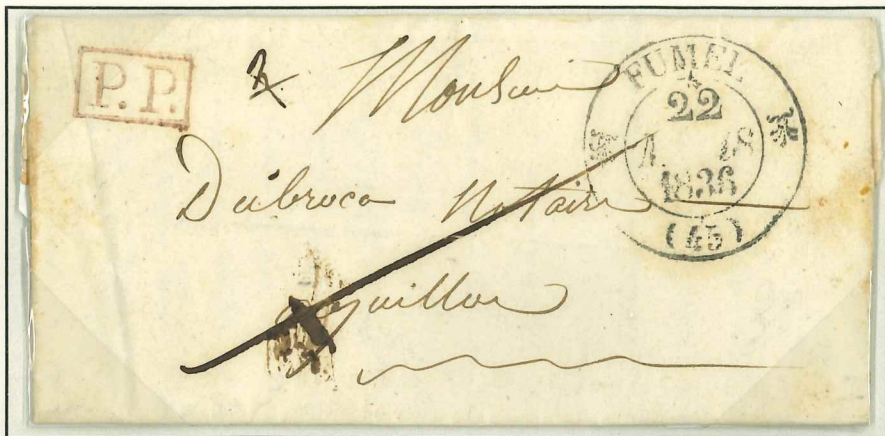 P.P.
Monsieur
Dubroca Notaire
Aiguillon
FUMEL
22
1836
(45)